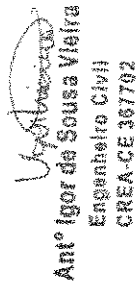 Antº Igor de Sousa Vieira
Engenheiro Civil
CREA-CE 367702